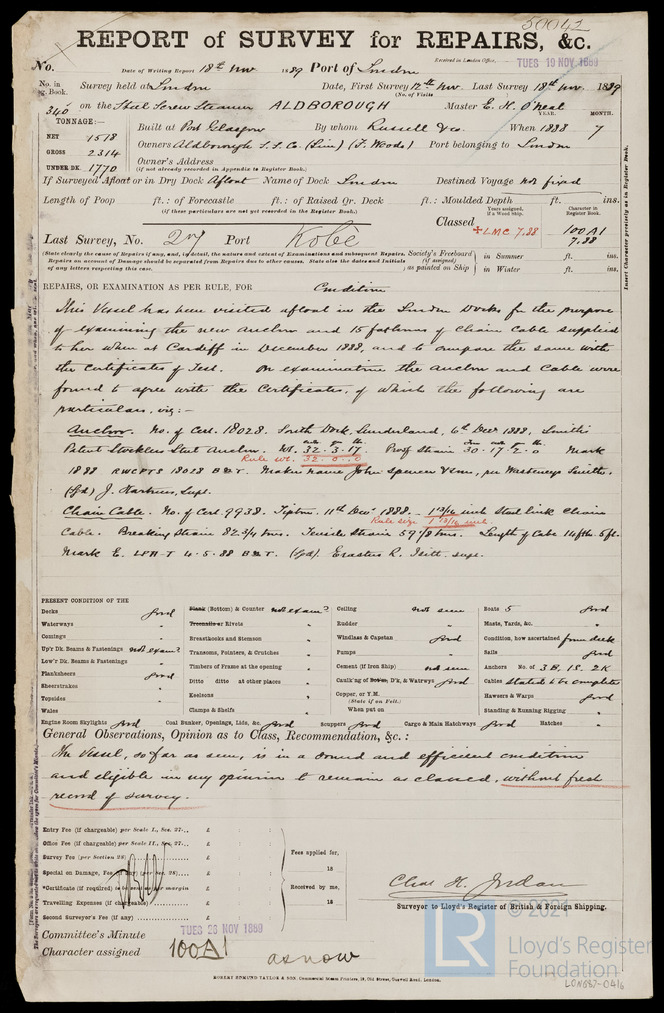 50042
REPORT of SURVEY for REPAIRS, &c.
No.
Received in London Office, TUES 19 NOV 1889
Date of Writing Report 18th Nov 1889 Port of London
No. in Reg. Book. Survey held at London Date, First Survey 12th Nov. Last Survey 18th Nov. 1889
(No. of Visits
340 on the Steel Screw Steamer ALDBOROUGH Master E. H. O'Neal
TONNAGE:—
YEAR. MONTH.
NET 1518 Built at Port Glasgow By whom Russell & Co. When 1888 7
GROSS 2314 Owners Aldborough S.S. Co. (Lim) (F. Woods) Port belonging to London
UNDER DK. 1770 Owner's Address
(if not already recorded in Appendix to Register Book.)
If Surveyed Afloat or in Dry Dock Afloat Name of Dock London Destined Voyage not fixed
Length of Poop ft.: of Forecastle ft.: of Raised Qr. Deck ft.: Moulded Depth ft. ins.
(if these particulars are not yet recorded in the Register Book.)
Years assigned, if a Wood Ship. Character in Register Book.
Classed ✠LMC 7.88 100A1
7.88
Last Survey, No. 207 Port Kobè
(State clearly the cause of Repairs if any, and, in detail, the nature and extent of Examinations and subsequent Repairs. Repairs on account of Damage should be separated from Repairs due to other causes. State also the dates and initials of any letters respecting this case.
Society's Freeboard (if assigned) as painted on Ship in Summer ft. ins.
in Winter ft. ins.
Insert Character precisely as in Register Book.
REPAIRS, OR EXAMINATION AS PER RULE, FOR Condition
This Vessel has been visited afloat in the London Docks for the purpose
of examining the new Anchor and 15 fathoms of Chain Cable supplied
to her when at Cardiff in December 1888, and to compare the same with
the Certificates of Test. On examination the Anchor and Cable were
found to agree with the Certificates, of which the following are
particulars, viz:—
Anchor. No. of Cert. 18028. South Dock, Sunderland, 6th Decr 1888, Smith's
Patent Stockless Steel Anchor. Wt. 32.3.17. Proof Strain 30.17.2.0 Mark
Rule wt. 32.0.0
1888 18028 Maker's name John Spencer & Sons, per Wasteneys Smith.
(Sgd) J. Hartness, Supt.
Chain Cable. No. of Cert. 9938. Tipton. 11th Decr 1888. 1 13/16 inch Stud link Chain
Rule size 1 13/16 inch
Cable. Breaking Strain 82 3/4 tons. Tensile Strain 59 1/8 tons. Length of Cable 14fths 5ft.
Mark E. LPH-T 4.5.88 B&T. (Sgd). Erastus R. Supt.
PRESENT CONDITION OF THE
Decks good
Waterways "
Comings "
Up'r Dk. Beams & Fastenings not exam?
Low'r Dk. Beams & Fastenings "
Planksheers good
Sheerstrakes "
Topsides "
Wales "
Plank (Bottom) & Counter not exam?
Treenails or Rivets "
Breasthooks and Stemson "
Transoms, Pointers, & Crutches "
Timbers of Frame at the opening "
Ditto ditto at other places "
Keelsons "
Clamps & Shelfs "
Ceiling not seen
Rudder "
Windlass & Capstan good
Pumps "
Cement (if Iron Ship) not seen
Caulking of Bottom, D'k, & Watrwys good
Copper, or Y.M.
(State if on Felt.)
When put on
Boats 5 good
Masts, Yards, &c. "
Condition, how ascertained from deck
Sails good
Anchors No. of 3B. 1S. 2K
Cables Stated to be complete
Hawsers & Warps good
Standing & Running Rigging "
Engine Room Skylights good Coal Bunker, Openings, Lids, &c. good Scuppers good Cargo & Main Hatchways good Hatches "
General Observations, Opinion as to Class, Recommendation, &c.:
The Vessel, so far as seen, is in a sound and efficient condition
and eligible in my opinion to remain as classed, without fresh
record of survey.
Entry Fee (if chargeable) per Scale I., Sec. 27... £
Office Fee (if chargeable) per Scale II., Sec. 27... £
Survey Fee (per Section 28) £
Special on Damage, Fee (if any) (per Sec. 28) £
*Certificate (if required) to be sent as per margin
Travelling Expenses (if chargeable) £
Second Surveyor's Fee (if any) £
Fees applied for, 18
Received by me, 18
Chas H. Jordan
Surveyor to Lloyd's Register of British & Foreign Shipping.
TUES 26 NOV 1889
Committee's Minute
Character assigned 100A1
as now
ROBERT EDMUND TAYLOR & SON, Commercial Steam Printers, 19, Old Street, Goswell Road, London.
© 2021
LR
Lloyd's Register
Foundation
LON687-0416